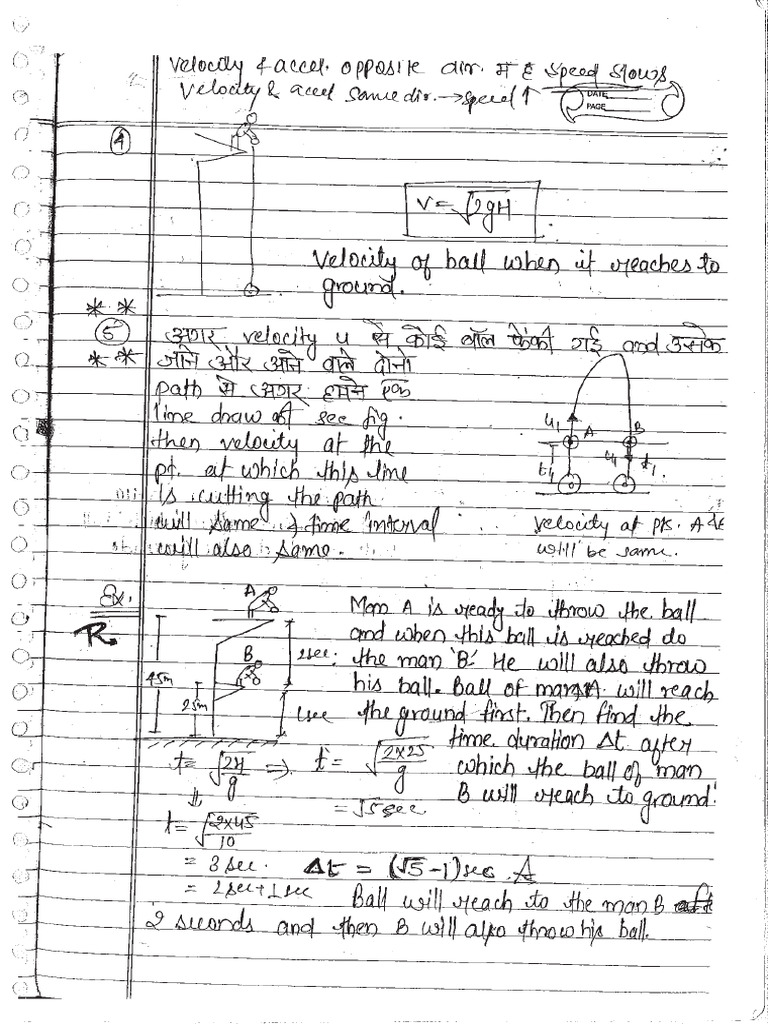 Velocity & accel. opposite dir. में है speed slows
Velocity & accel same dir. → speed ↑
DATE
PAGE
4
V = √2gH
Velocity of ball when it reaches to
ground.
* *
5
* *
अगर velocity u से कोई बॉल फेंकी गई and उसके
जाने और आने वाले दोनो
path से अगर हमने एक
line draw की see fig.
then velocity at the
pt. at which this line
is cutting the path
will same & time interval
will also same.
u₁ A B
t₁ u₁ t₁
velocity at pts. A &
will be same.
Ex.
R
A
B
45m
25m
2sec
1sec
Man A is ready to throw the ball
and when this ball is reached do
the man 'B'. He will also throw
his ball. Ball of man A will reach
the ground first. Then find the
time duration Δt after
which the ball of man
B will reach to ground.
t = √2H/g ⇒ t' = √2×25/g
= √5 sec
⇓
t = √2×45/10
= 3 sec.
= 2sec+1sec
Δt = (√5-1)sec. A
Ball will reach to the man B
2 seconds and then B will also throw his ball.